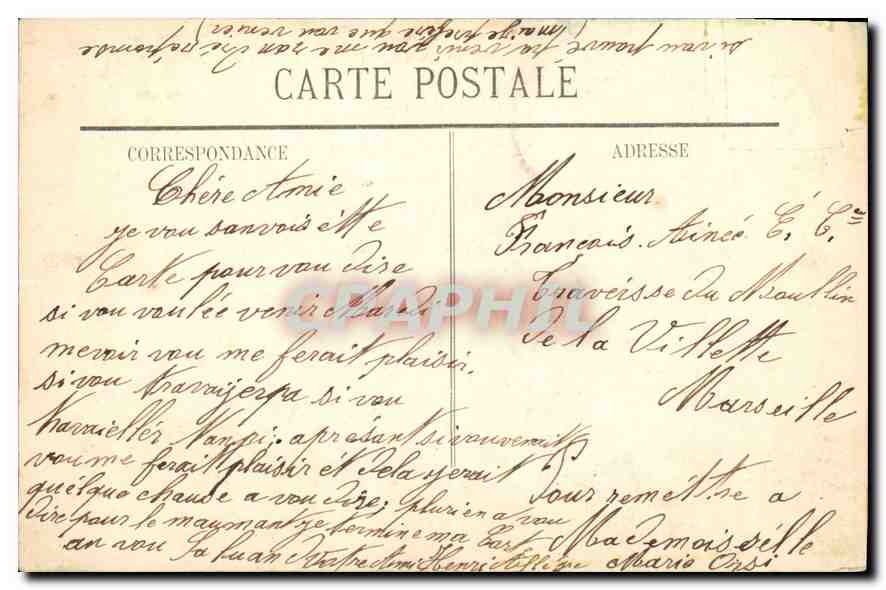 si vou pouvé pa venir vou me ran dré réponse
(mai je préfère que vou venier)
CARTE POSTALE
CORRESPONDANCE
Chère Amie
je vou sanvois étte
Carte pour vou dire
si vou voulée venir Mardi
me voir vou me ferait plaisir.
si vou travaijer pa si vou
travaiellér aprésant si vou venait
vou me ferait plaisir ét de la jerait
quélque chause a vou dire; plu rien a vou
dire pour le maumant je termine ma Cart
an vou Saluan Votre Ami Henri
ADRESSE
Monsieur
François. Ainée. C. Cie
Traverisse du Moullin
de la Villette
Marseille
Pour remét.tre a
Mademoisélle
Marie Orsi
CPAPHIL